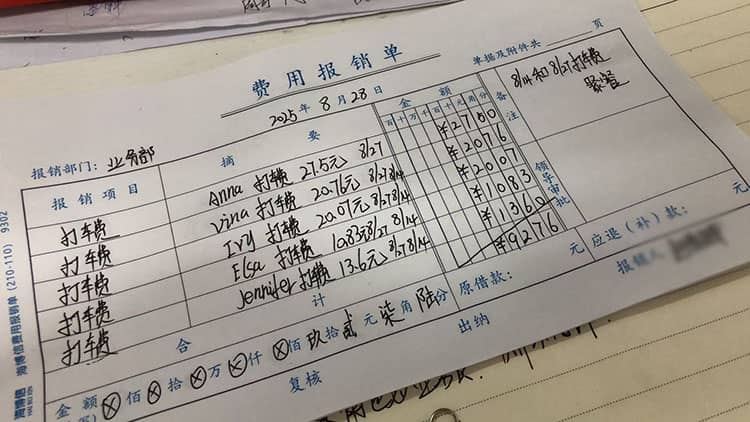 费用报销单
2025年8月28日
单据及附件共 页
报销部门：业务部
报销项目 摘要 金额 备注
百十万千百十元角分
8/14和8/27打车费
聚餐
打车费 Anna 打车费 27.5元 8/27 ¥2750
打车费 Vina 打车费 20.76元 8/27 8/14 ¥2076
打车费 Ivy 打车费 20.07元 8/27 8/14 ¥2007
打车费 Elsa 打车费 10.83元 8/27 8/14 ¥1083
打车费 Jennifer 打车费 13.6元 8/27 8/14 ¥1360
领导审批
合计 ¥9276
金额 ⊗佰⊗拾⊗万⊗仟⊗佰玖拾贰元柒角陆分 原借款： 元 应退（补）款： 元
复核 出纳 报销人
海博信费用报销单 (210-110) 9302